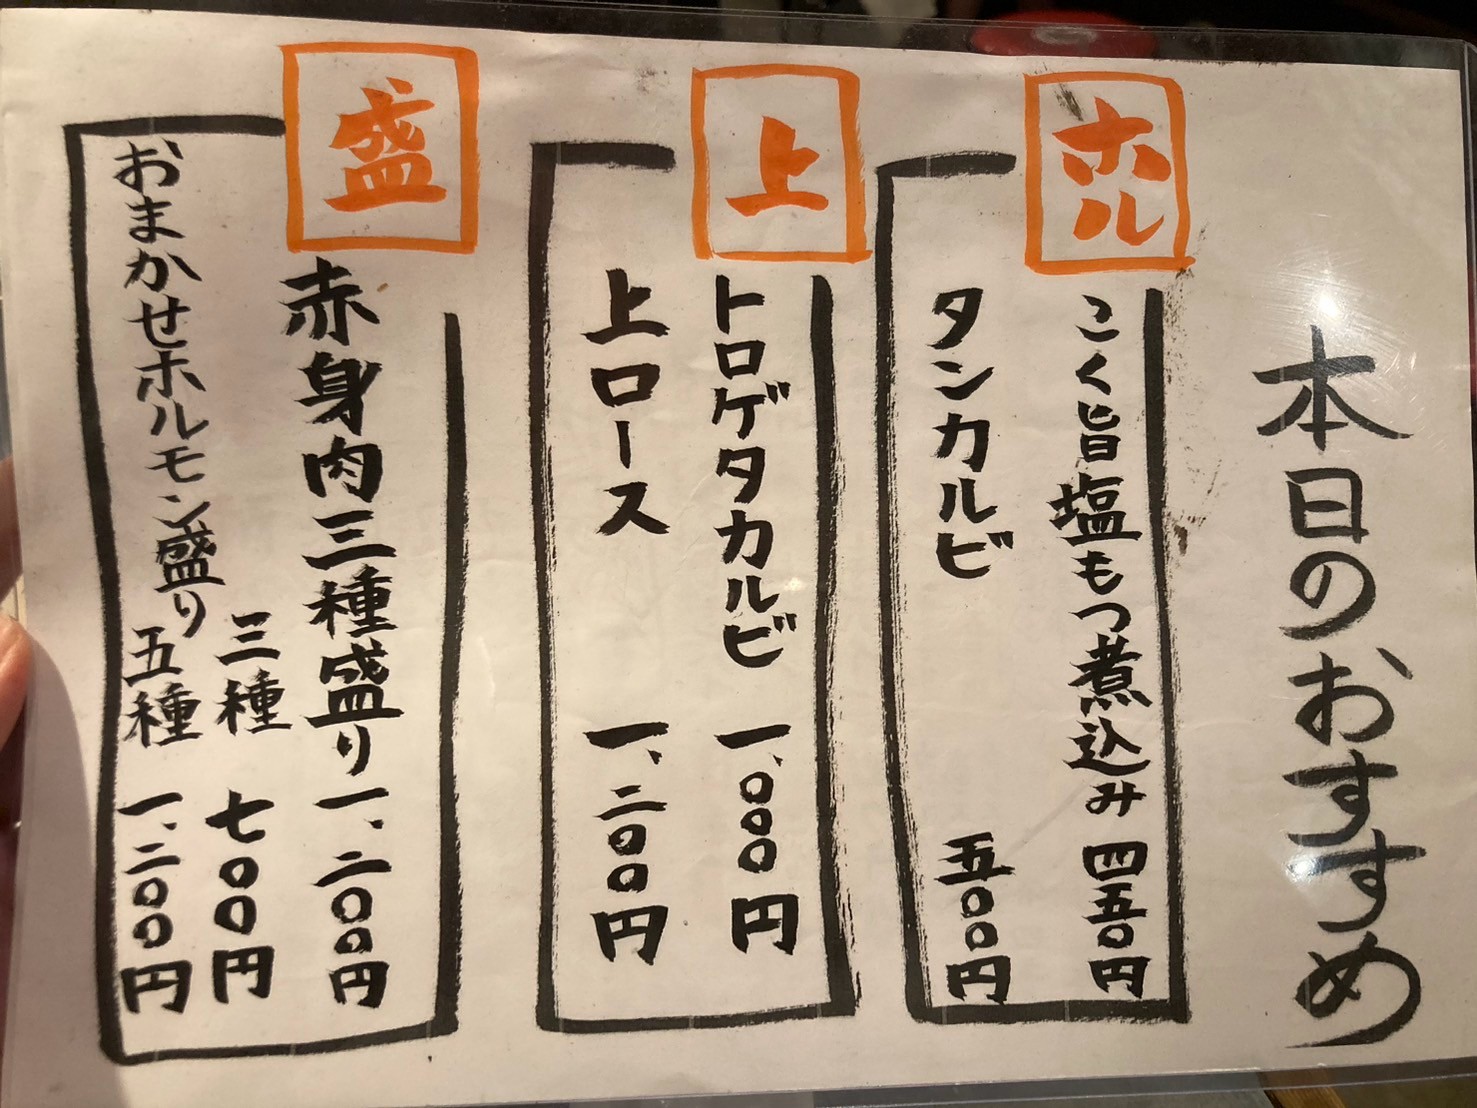 本日のおすすめ
ホル
こく旨塩もつ煮込み 四五〇円
タンカルビ 五〇〇円
上
トロゲタカルビ 一、〇〇〇円
上ロース 一、二〇〇円
盛
赤身肉三種盛り 一、二〇〇円
おまかせホルモン盛り
三種 七〇〇円
五種 一、二〇〇円